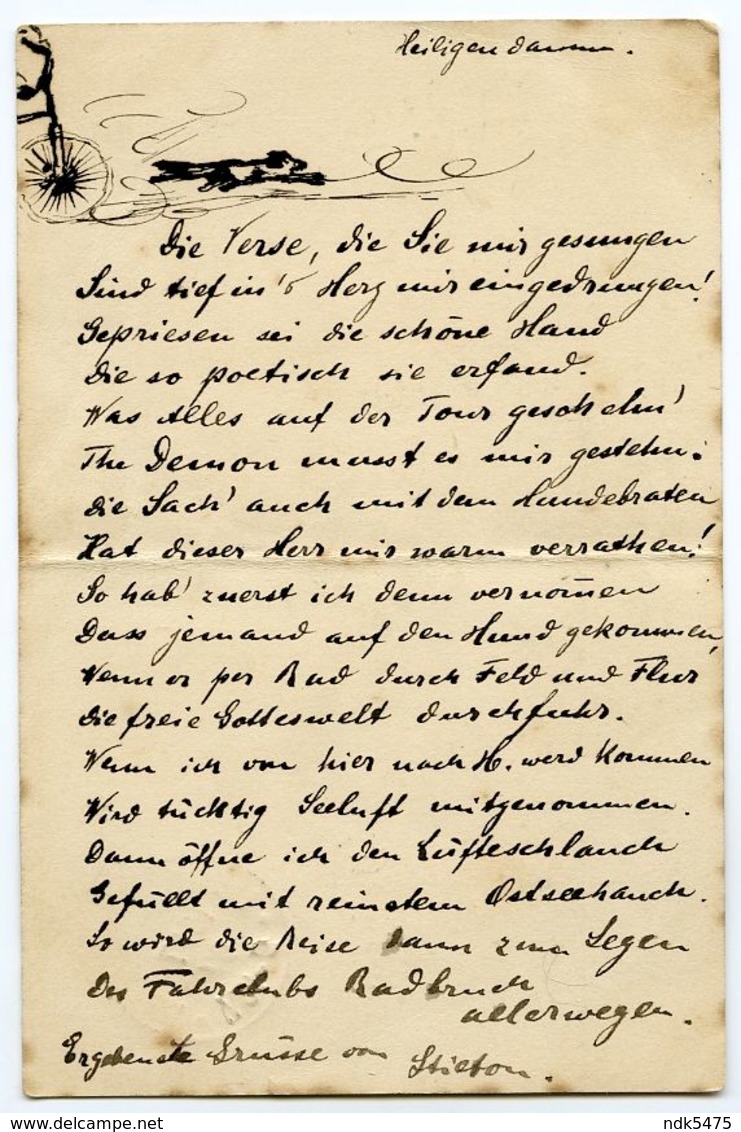 Heiligendamm.
Die Verse, die Sie mir gesungen
Sind tief in's Herz mir eingedrungen!
Gepriesen sei die schöne Hand
Die so poetisch sie erfand.
Was Alles auf der Tour gescheh'n!
The Demon musst es mir gestehn:
Die Sach' auch mit dem Hundebraten
Hat dieser Herr mir warm verrathen!
So hab' zuerst ich denn vernom̄en
Dass jemand auf den Hund gekommen,
Wenn er per Rad durch Feld und Flur
Die freie Gotteswelt durchfuhr.
Wenn ich von hier nach H. werd kommen
Wird tüchtig Seeluft mitgenommen.
Dann öffne ich den Lüfteschlauch
Gefüllt mit reinstem Ostseehauch.
So wird die Reise dann zum Segen
Des Fahrclubs Radbruch
allerwegen.
Ergebenste Grüsse von
ndk5475